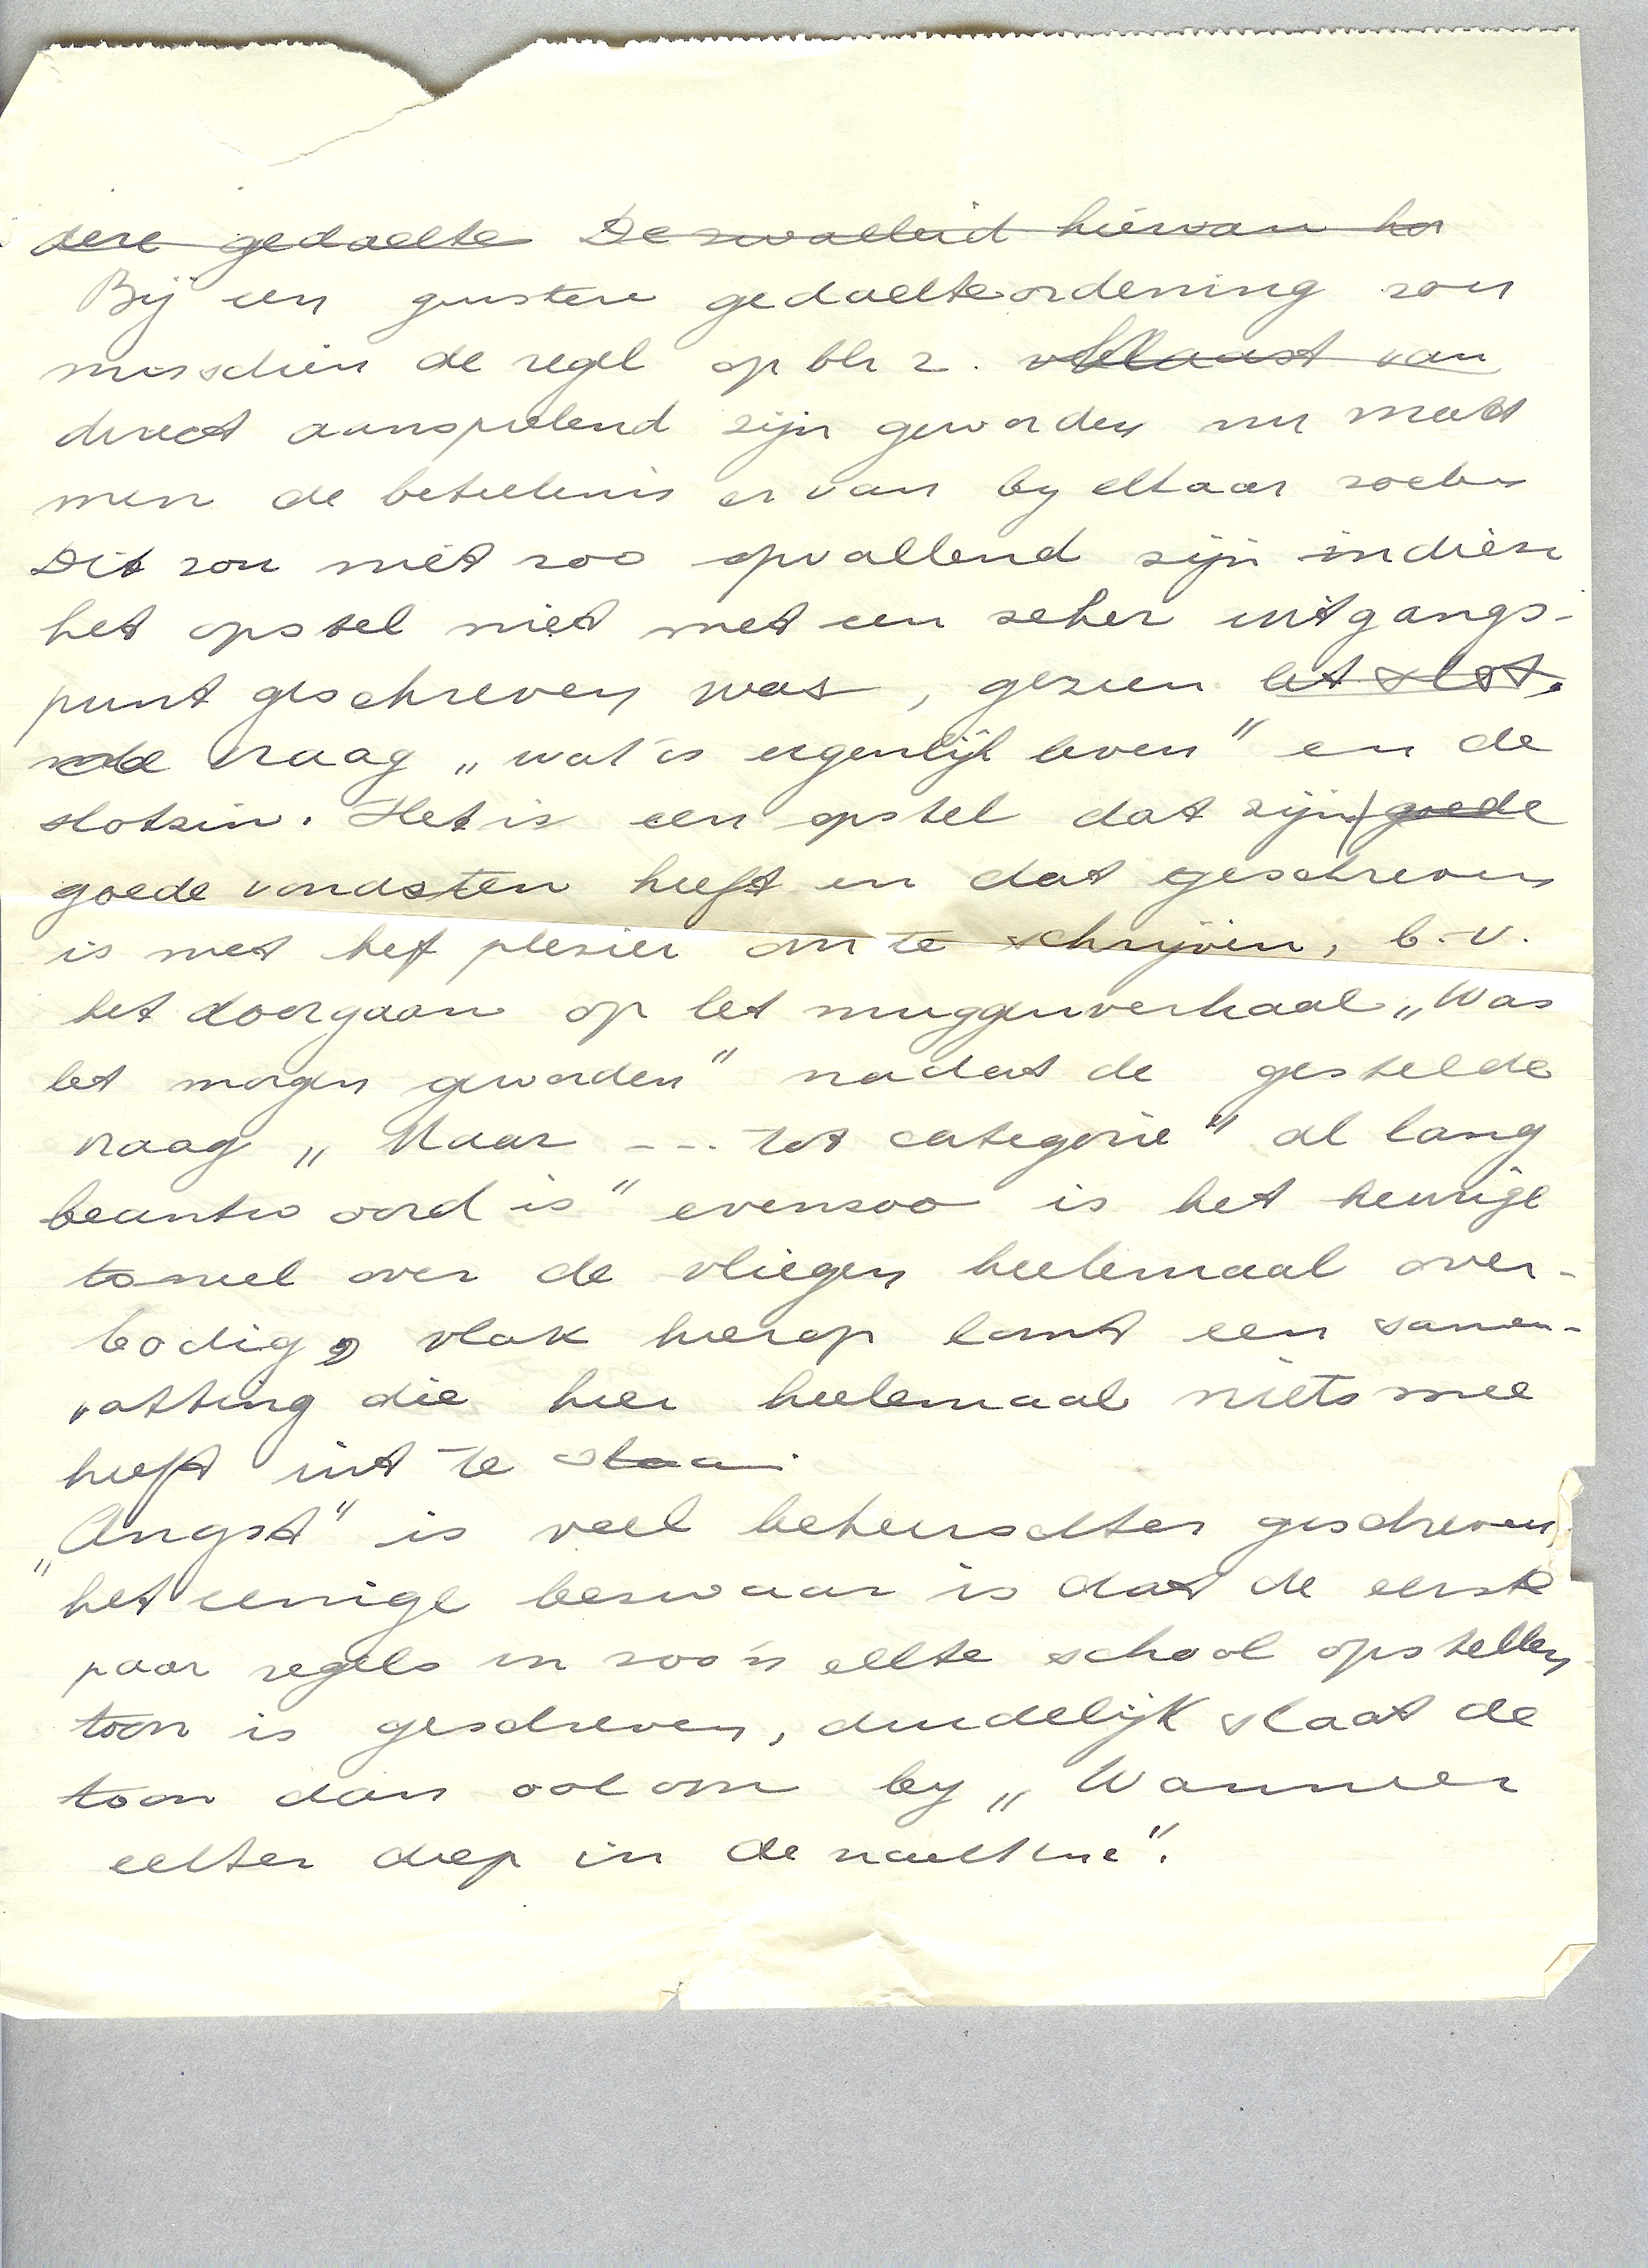 dere gedachte De zwakheid hiervan ho
Bij een juistere gedachteordening zou
misschien de regel op blz 2. van
direct aansprekend zijn geworden nu moet
men de betekenis er van by elkaar zoeken
Dit zou niet zoo opvallend zijn indien
het opstel niet met een zeker uitgangs-
punt geschreven was, gezien het slot.
de vraag „wat is eigenlijk leven" en de
slotzin. Het is een opstel dat zijn goede
goede vondsten heeft en dat geschreven
is met het plezier om te schrijven, b.v.
het doorgaan op het muggenverhaal „Was
het morgen geworden" nadat de gestelde
vraag „Maar --- tot categorie" al lang
beantwoord is" evenzoo is het heurige
toneel over de vliegen heelemaal over-
bodig, vlak hierop komt een samen-
vatting die hier heelemaal niets mee
heeft uit te staan.
„Angst" is veel beheerschter geschreven,
het eenige bezwaar is dat de eerste
paar regels in zoo'n echte school opstellen
toon is geschreven, duidelijk slaat de
toon dan ook om by „Wanneer
echter diep in de nacht